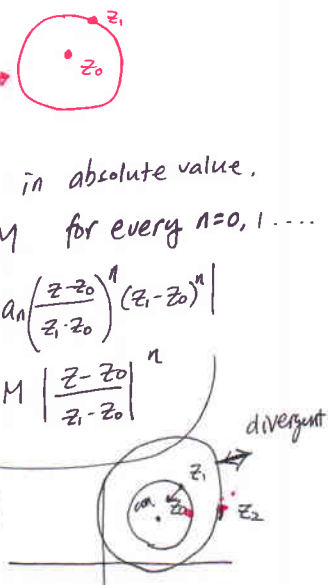 z₁
z₀
in absolute value.
M for every n=0, 1 ....
aₙ((z-z₀)/(z₁-z₀))ⁿ (z₁-z₀)ⁿ|
M |(z-z₀)/(z₁-z₀)|ⁿ
divergent
z₁
z₂